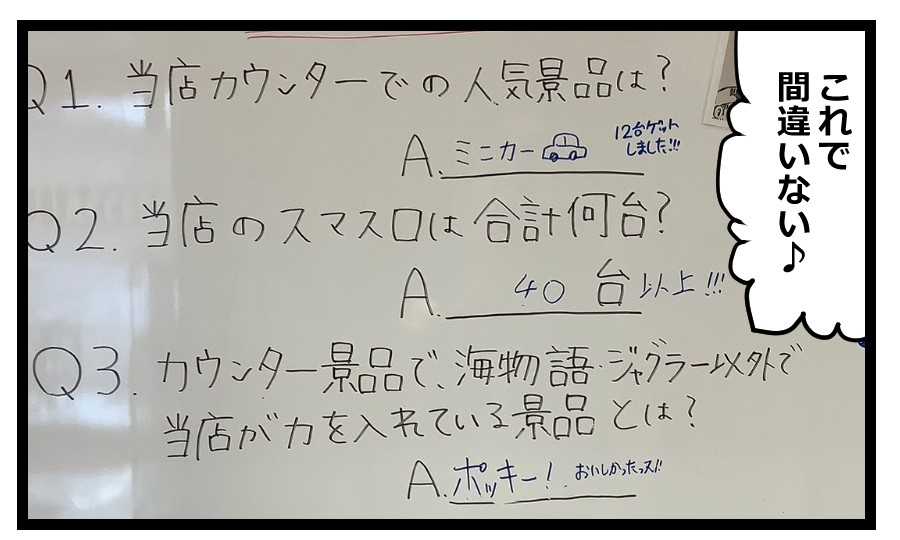 Q1. 当店カウンターでの人気景品は?
A. ミニカー 12台ゲット
しました!!!
Q2. 当店のスマスロは合計何台?
A. 40台以上!!!
Q3. カウンター景品で、海物語・ジャグラー以外で
当店が力を入れている景品とは?
A. ポッキー! おいしかったっス!!
これで
間違いない♪